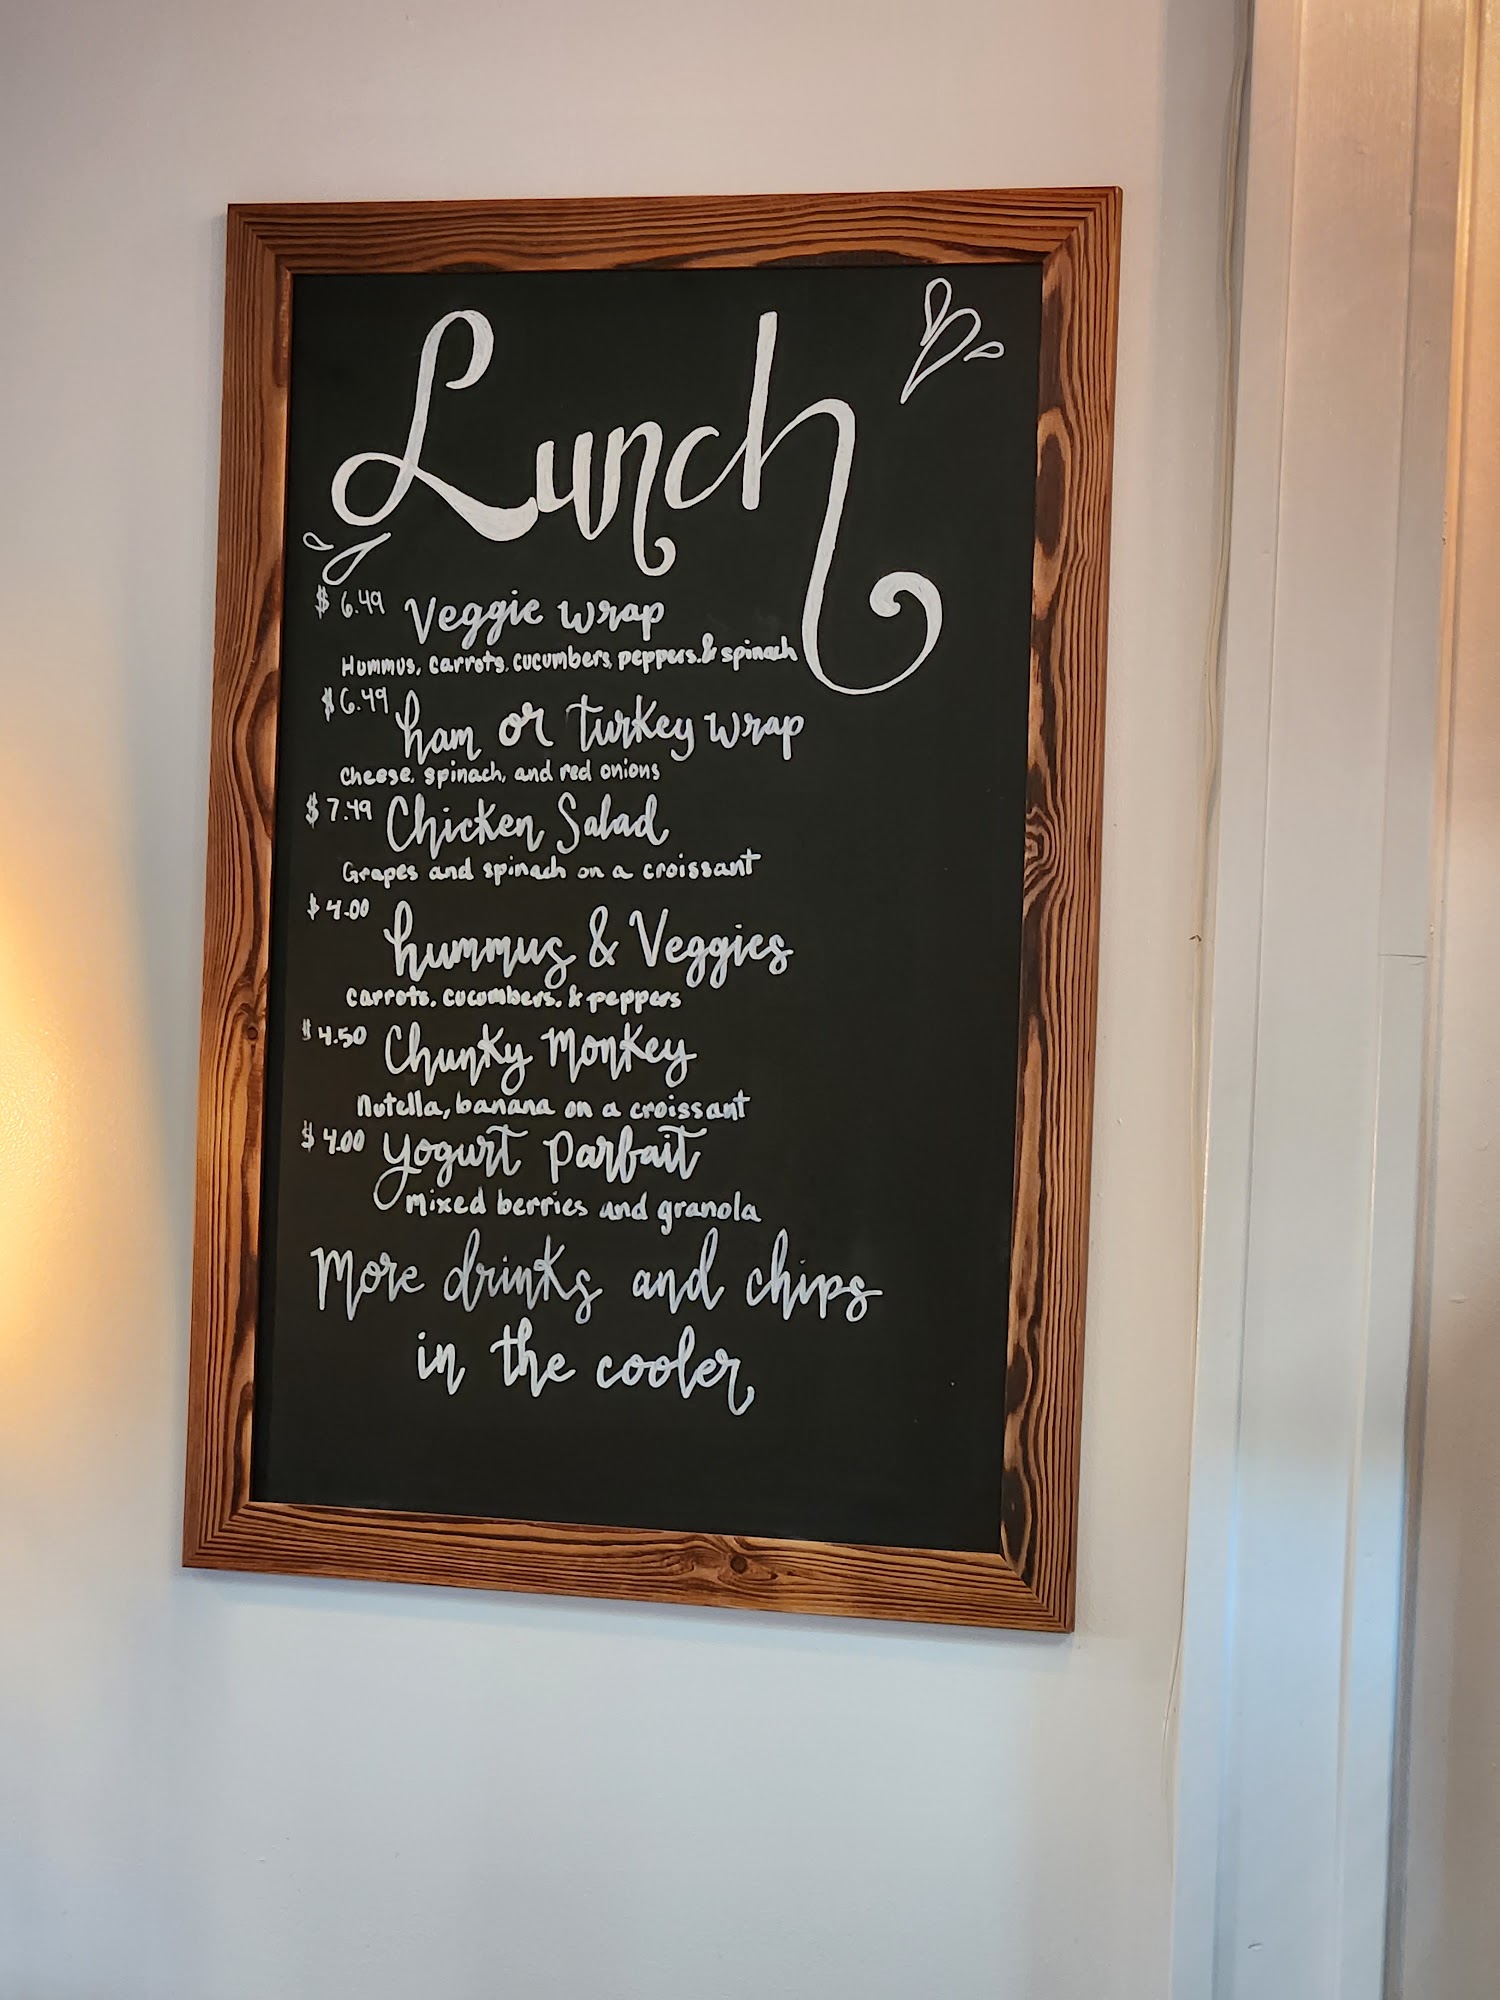 Lunch
$ 6.49 Veggie wrap
Hummus, carrots, cucumbers, peppers, & spinach
$ 6.49 ham or turkey wrap
Cheese, spinach, and red onions
$ 7.49 Chicken Salad
Grapes and spinach on a croissant
$ 4.00 hummus & Veggies
Carrots, cucumbers, & peppers
$ 4.50 Chunky Monkey
Nutella, banana on a croissant
$ 4.00 yogurt Parfait
mixed berries and granola
More drinks and chips
in the cooler